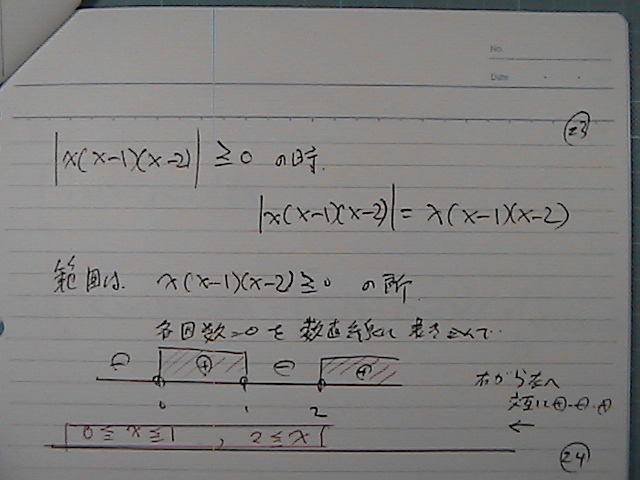 No.
Date
23
|x(x-1)(x-2)| ≧0 の時.
|x(x-1)(x-2)| = x(x-1)(x-2)
範囲は. x(x-1)(x-2)≧0 の所.
各因数=0を数直線に書きこんで…
⊖ ⊕ ⊖ ⊕
0 1 2
右から左へ
交互に⊕・⊖・⊕
←
0≦x≦1, 2≦x
24